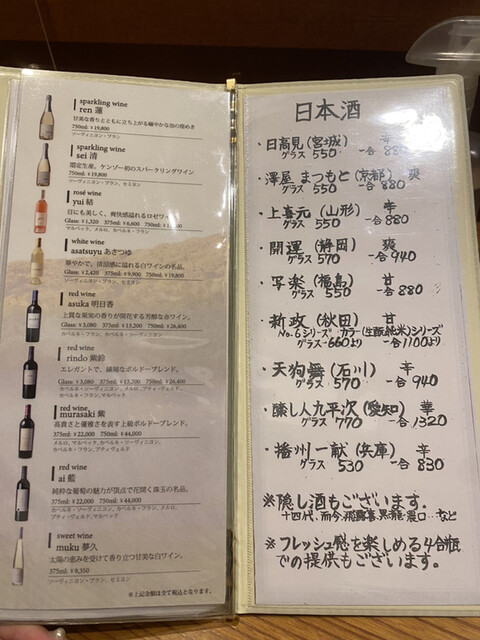 sparkling wine
ren 蓮
甘美な香りとともに立ち上がる細やかな泡の煌めき
750ml: ￥19,800
ソーヴィニヨン・ブラン
sparkling wine
sei 清
限定生産。ケンゾー初のスパークリングワイン
750ml: ￥19,800
ソーヴィニヨン・ブラン、セミヨン
rosé wine
yui 結
目にも美しく、爽快感溢れるロゼワイン
Glass: ￥1,320 375ml: ￥6,600 750ml:
マルベック、メルロ、カベルネ・フラン
white wine
asatsuyu あさつゆ
華やかで、清涼感に溢れる白ワインの名品。
Glass: ￥2,420 375ml: ￥9,900 750ml: ￥19,800
ソーヴィニヨン・ブラン
red wine
asuka 明日香
上質な果実の香りが開花する芳醇な赤ワイン。
Glass: ￥3,080 375ml: ￥13,200 750ml: ￥26,400
カベルネ・フラン
red wine
rindo 紫鈴
エレガントで、繊細なボルドーブレンド。
Glass: ￥3,080 375ml: ￥13,200 750ml: ￥26,400
カベルネ・ソーヴィニヨン、メルロ、プティ・ヴェルド、
カベルネ・フラン、マルベック
red wine
murasaki 紫
高貴さと優雅さを表す上級ボルドーブレンド。
375ml: ￥22,000 750ml: ￥44,000
メルロ、カベルネ・ソーヴィニヨン、
カベルネ・フラン、プティ・ヴェルド
red wine
ai 藍
純粋な葡萄の魅力が頂点で花開く珠玉の名品。
375ml: ￥22,000 750ml: ￥44,000
カベルネ・ソーヴィニヨン、カベルネ・フラン、メルロ、
プティ・ヴェルド、マルベック
sweet wine
muku 夢久
太陽の恵みを受けて香り立つ甘美な白ワイン。
375ml: ￥9,350
ソーヴィニヨン・ブラン、セミヨン
※上記金額は全て税込となります。
日本酒
・日高見(宮城) 辛
グラス 550 一合 880
・澤屋 まつもと(京都) 爽
グラス 550 一合 880
・上喜元 (山形) 辛
グラス 550 一合 880
・開運 (静岡) 爽
グラス 570 一合 940
・写楽 (福島) 甘
グラス 550 一合 880
・新政 (秋田) 甘
No.6シリーズ カラー(生酛純米)シリーズ
グラス 660より 一合 1100より
・天狗舞 (石川) 辛
グラス 570 一合 940
・醸し人九平次 (愛知) 華
グラス 770 一合 1320
・播州一献 (兵庫) 辛
グラス 530 一合 830
※隠し酒もございます。
十四代、而今、飛露喜、黒龍、など
※フレッシュ感を楽しめる4合瓶
での提供もございます。